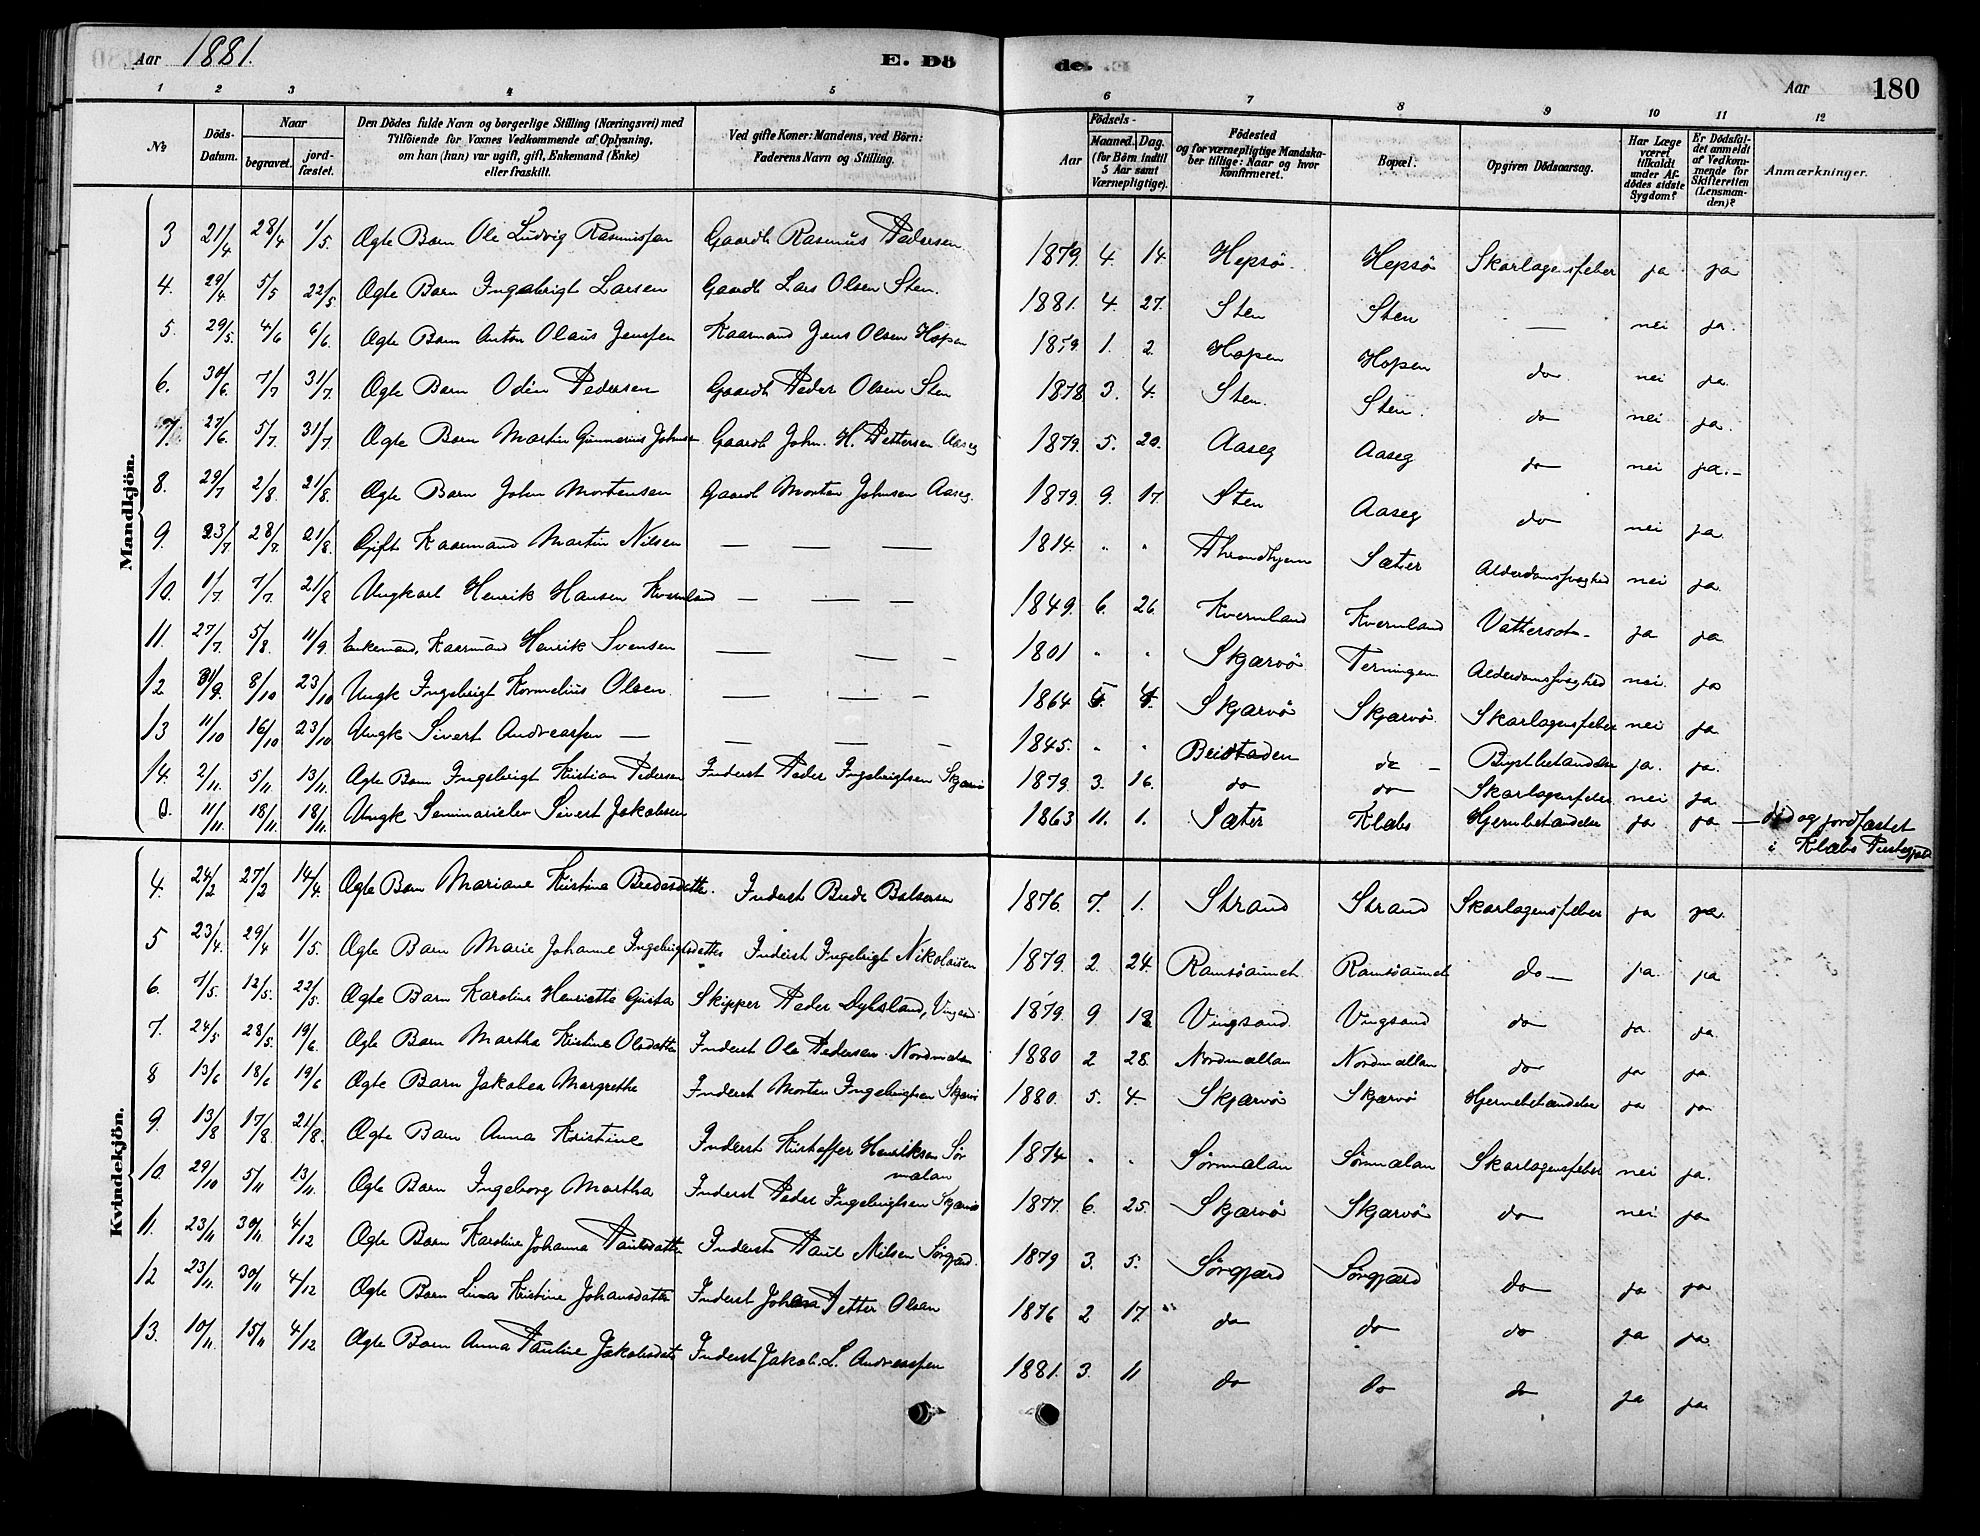 Aar 1881. E. Dö de. Aar 180
1 2 3 4 5 6 7 8 9 10 11 12
No
Döds-Datum.
Naar
begravet.
jord-fæstet.
Den Dödes fulde Navn og borgerlige Stilling (Næringsvei) med
Tilföiende for Voxnes Vedkommende af Oplysning,
om han (hun) var ugift, gift, Enkemand (Enke)
eller fraskilt.
Ved gifte Koner: Mandens, ved Börn:
Faderens Navn og Stilling.
Födsels-
Aar
Maaned. Dag.
(for Börn indtil
5 Aar samt
Værnepligtige).
Födested
og for værnepligtige Mandska-
ber tillige: Naar og hvor
konfirmeret.
Bopæl.
Opgiven Dödsaarsag.
Har Læge
været
tilkaldt
under Af-
dödes sidste
Sygdom?
Er Dödsfal-
det anmeldt
af Vedkom-
mende for
Skifteretten
(Lensman-
den)?
Anmærkninger.
Mandkjön.
3 21/4 28/4 1/5. Ægte Barn Ole Ludvig Rasmussen Gaardb Rasmus Pedersen 1879. 4. 14. Hepsö Hepsö Skarlagensfeber ja ja
4. 29/4 5/5 22/5 Ægte Barn Ingebrigt Larsen Gaardb Lars Olsen Sten. 1881. 4. 27. Sten Sten — nei ja.
5. 29/5. 4/6 6/6. Ægte Barn Anton Olaus Jenssen Kaarmand Jens Olsen Hopen 1. 2. Hopen Hopen do nei ja.
6. 30/6. 7/7 31/7. Ægte Barn Odin Pedersen Gaardb Peder Olsen Sten 1878 3. 4. Sten. Sten. do nei ja.
7. 27/6. 5/7. 31/7 Ægte Barn Martin Gunnerius Johnsen Gaardb John. H. Pettersen Aaseg 1879. 5. 20. Aaseg Aaseg do nei ja.—
8. 29/7 2/8. 21/8. Ægte Barn John Mortensen Gaardb Morten Johnsen Aaseg. 1879. 9. 17. Sten Aaseg do nei ja.
9. 23/7 28/7. 21/8. Gift Kaarmand Martin Nilsen — — — 1814. " " Throndhjem Sæter Alderdomssvaghed nei ja.
10. 1/7. 7/7. 21/8 Ungkarl Henrik Hansen Kvernland — — — 1849. 6. 26. Kvernland Kvernland Vattersot— ja ja.
11. 27/7. 5/8. 11/9. Enkemand, Kaarmand Henrik Svensen — — — 1801 " " Skjærvö Terningen Alderdomssvaghed nei. ja
12 8/10 23/10 Ungk Ingebrigt Kornelius Olsen. — — — 1864 Skjærvö Skjærvö. Skarlagensfeber nei ja.
13 11/10 16/10 23/10 Ungk Sivert Andreassen — — — — 1845. " " do — Brystbetændelse ja. ja.
14. 2/11. 5/11 13/11. Ægte Barn Ingebrigt Kristian Pedersen Inderst Peder Ingebrigtsen Skjærvö 1879. 3. 16. do do Skarlagensfeber nei ja.
0. 11/11. 18/11. 18/11. Ungk Seminarielev Sivert Jakobsen 1863 11. 1. Sæter Klæbo Hjernebetændelse ja ja — död og jordfæstet
i Klæbo Præstegjæld
Kvindekjön.
4. 24/2 27/2 14/4. Ægte Barn Mariane Kristine Bredesdatter. Inderst Brede Balsersen 1876. 7. 1. Strand Strand Skarlagensfeber ja ja.
5 23/4. 29/4 1/5. Ægte Barn Marie Johanne Ingebrigtsdatter Inderst Ingebrigt Nikolaisen 1879. 2. 24. Ramsöaunet. Ramsöaunet do— ja. ja
6. 7/5. 12/5. 22/5. Ægte Barn Karoline Henriette Gusta Skipper Peder Dybsland, Vingsand 1879. 9 18. Vingsand. Vingsand do ja. ja.
7. 24/5 28/5. 19/6. Ægte Barn Martha Kristine Olsdatter Inderst Ole Pedersen. Nordmælan 1880 2 28. Nordmællan Nordmællan do ja ja.
8 13/6 18/6 19/6 Ægte Barn Jakobea Margrethe Inderst Morten Ingebrigtsen Skjærvö 1880. 5. 4. Skjærvö Skjærvö Hjernebetændelse ja ja.
9. 13/8 17/8. 21/8. Ægte Barn Anna Kristine Inderst Kristoffer Henriksen Sör
mælan 1874 " " Sörmælan Sörmælan Skarlagensfeber nei ja.
10. 29/10 5/11 13/11. Ægte Barn Ingeborg Martha Inderst Peder Ingebrigtsen Skjærvö 1877. 6. 25. Skjærvö Skjærvö do nei ja
11. 23/11 30/11 4/12 Ægte Barn Karoline Johanna Paulsdatter Inderst Paul Nilsen Sörgjærd. 1879 3. 5. Sörgjærd Sörgjærd do ja ja
12 23/11. 30/11 4/12 Ægte Barn Lina Kristine Johansdatter Inderst Johan Petter Olsen 1876 2 17. " do do do ja ja.
13. 10/11 15/11 4/12 Ægte Barn Anna Pauline Jakobsdatter Inderst Jakob. L. Andreassen 1881. 3. 11 do do do ja ja.